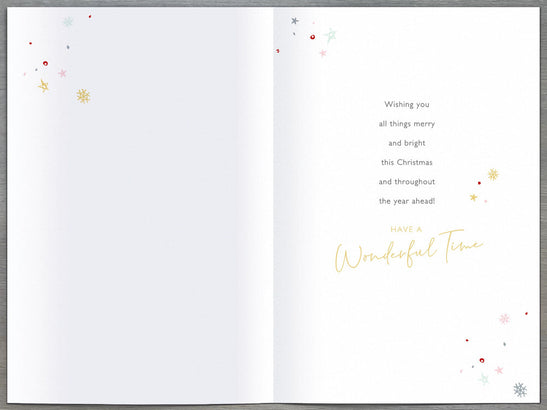 Wishing you
all things merry
and bright
this Christmas
and throughout
the year ahead!
HAVE A
Wonderful Time